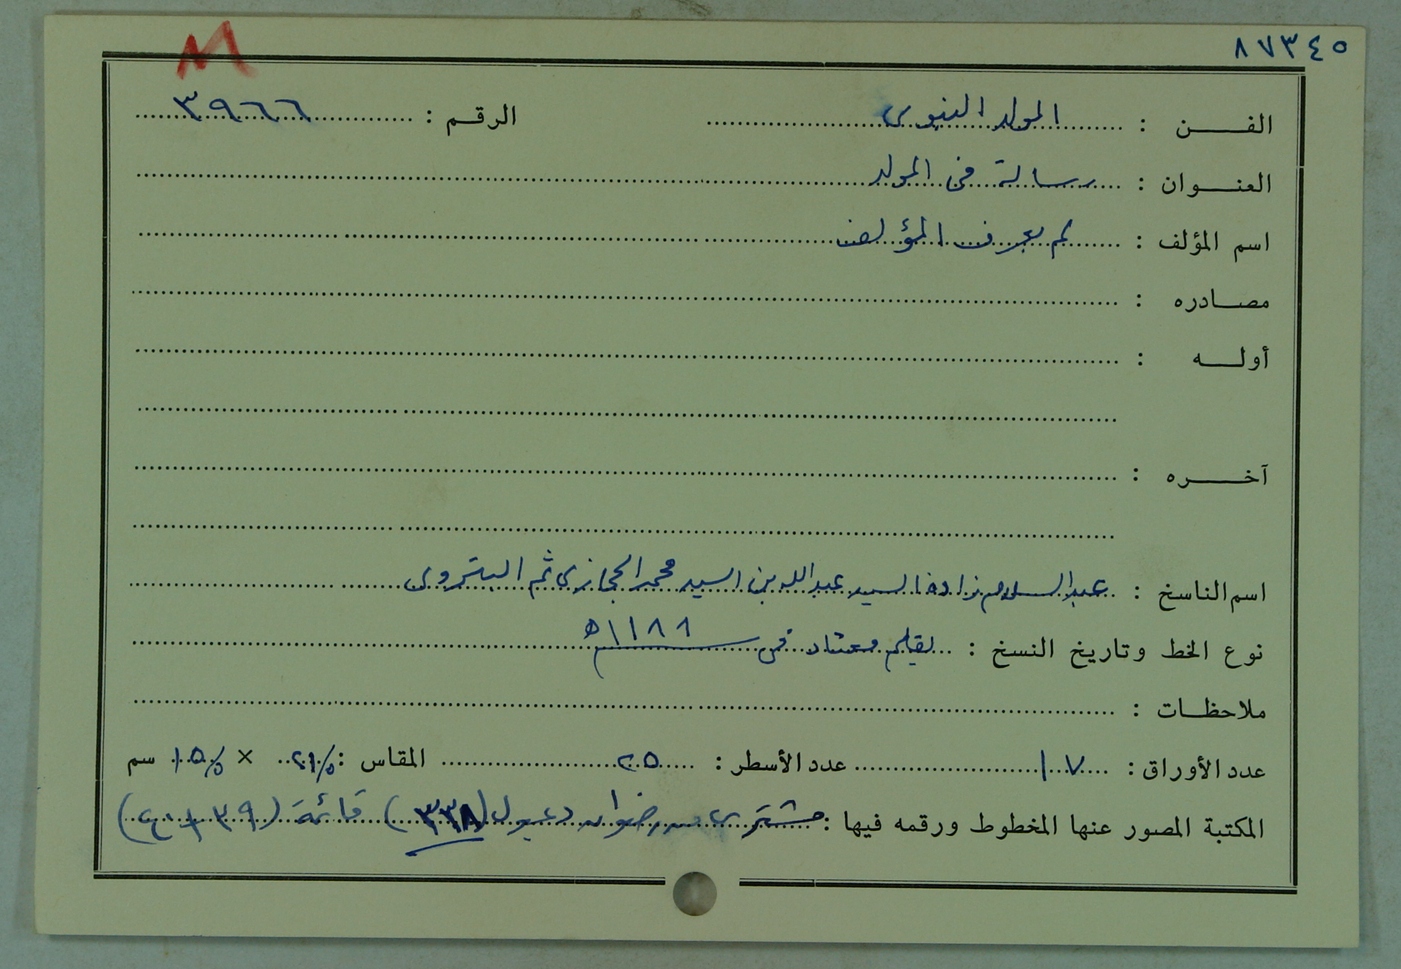 ٨٧٣٤٥
M
الفن : المولد النبوي الرقم : ٣٩٦٦
العنوان : رسالة في المولد
اسم المؤلف : لم يعرف المؤلف
مصادره :
أوله :
آخره :
اسم الناسخ : عبد السلام زاده السيد عبد الله بن السيد محمد الحجازي ثم البتروني
نوع الخط وتاريخ النسخ : بقلم معتاد في ١١٨٩هـ
ملاحظات :
عدد الأوراق : ١٠٧ عدد الأسطر : ٢٥ المقاس : ٢١/٥ × ١٥/٥ سم
المكتبة المصور عنها المخطوط ورقمه فيها : مشترى من رضوان دعبول (٣٣٨) قائمة